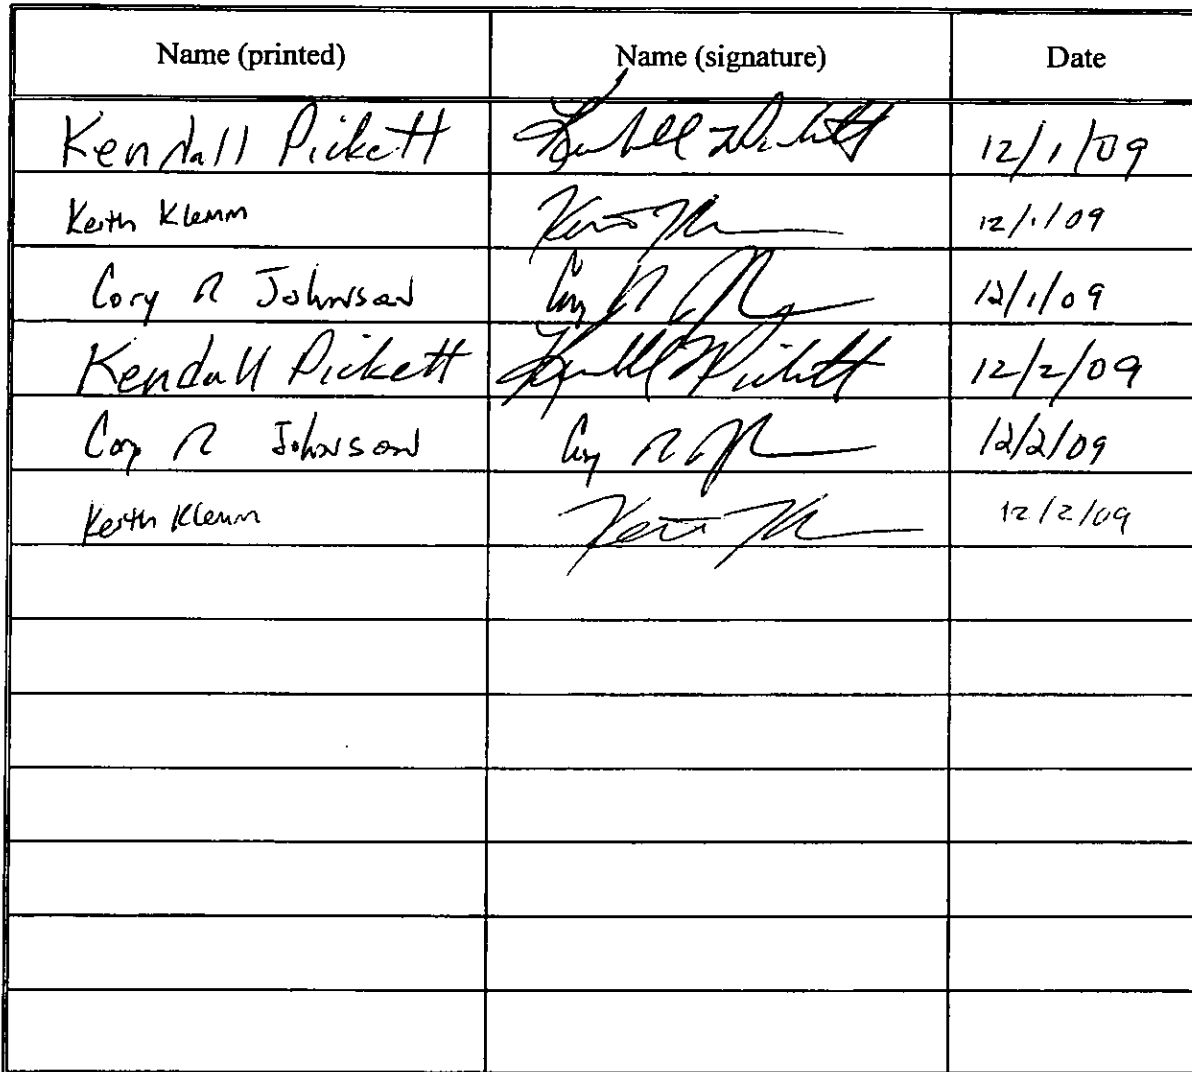 Name (printed) Name (signature) Date
Kendall Pickett Kendall Pickett 12/1/09
Keith Klemm 12/1/09
Cory R Johnson Cory R 12/1/09
Kendall Pickett Kendall Pickett 12/2/09
Cory R Johnson Cory R 12/2/09
Keith Klemm Keith 12/2/09